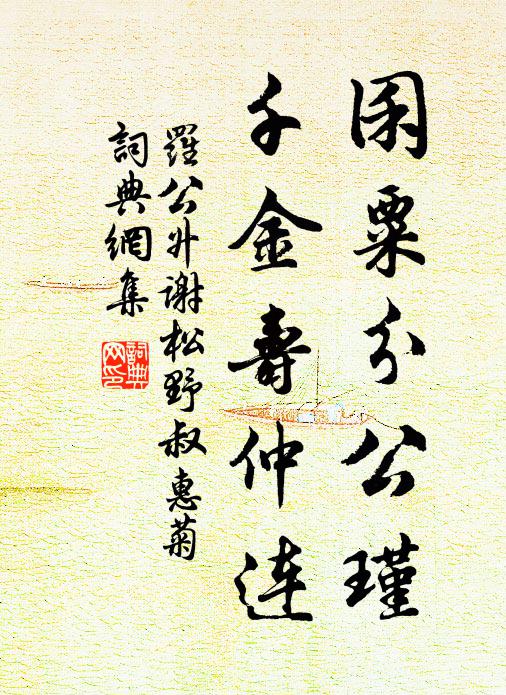 囷粟分公瑾
千金壽仲連
羅公升謝松野叔惠菊
詞典網集
詞典
网印